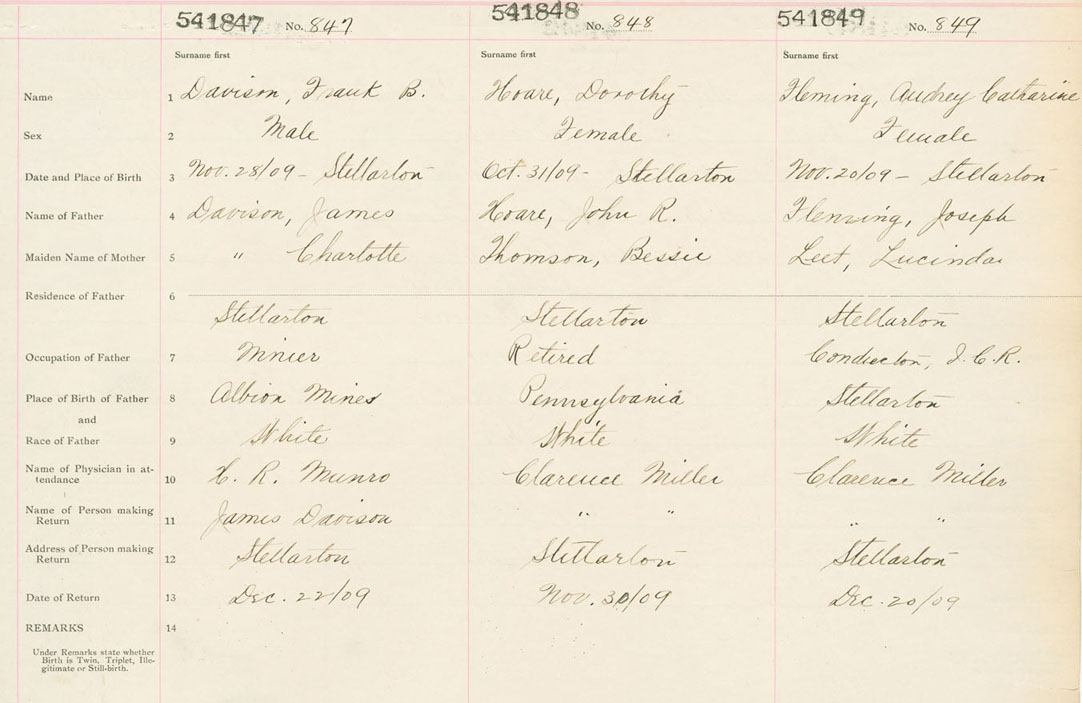 541847 No. 847 541848 No. 848 541849 No. 849
Surname first Surname first Surname first
Name 1 Davison, Frank B. Hoare, Dorothy Fleming, Audrey Catharine
Sex 2 Male Female Female
Date and Place of Birth 3 Nov. 28/09 - Stellarton Oct. 31/09 - Stellarton Nov. 20/09 - Stellarton
Name of Father 4 Davison, James Hoare, John R. Fleming, Joseph
Maiden Name of Mother 5 " Charlotte Thomson, Bessie Leet, Lucinda
Residence of Father 6
Stellarton Stellarton Stellarton
Occupation of Father 7 Minier Retired Conductor, I.C.R.
Place of Birth of Father 8 Albion Mines Pennsylvania Stellarton
and
Race of Father 9 White White White
Name of Physician in at-
tendance 10 H. R. Munro Clarence Miller Clarence Miller
Name of Person making
Return 11 James Davison " " " "
Address of Person making
Return 12 Stellarton Stellarton Stellarton
Date of Return 13 Dec. 22/09 Nov. 30/09 Dec. 20/09
REMARKS 14
Under Remarks state whether
Birth is Twin, Triplet, Ille-
gitimate or Still-birth.